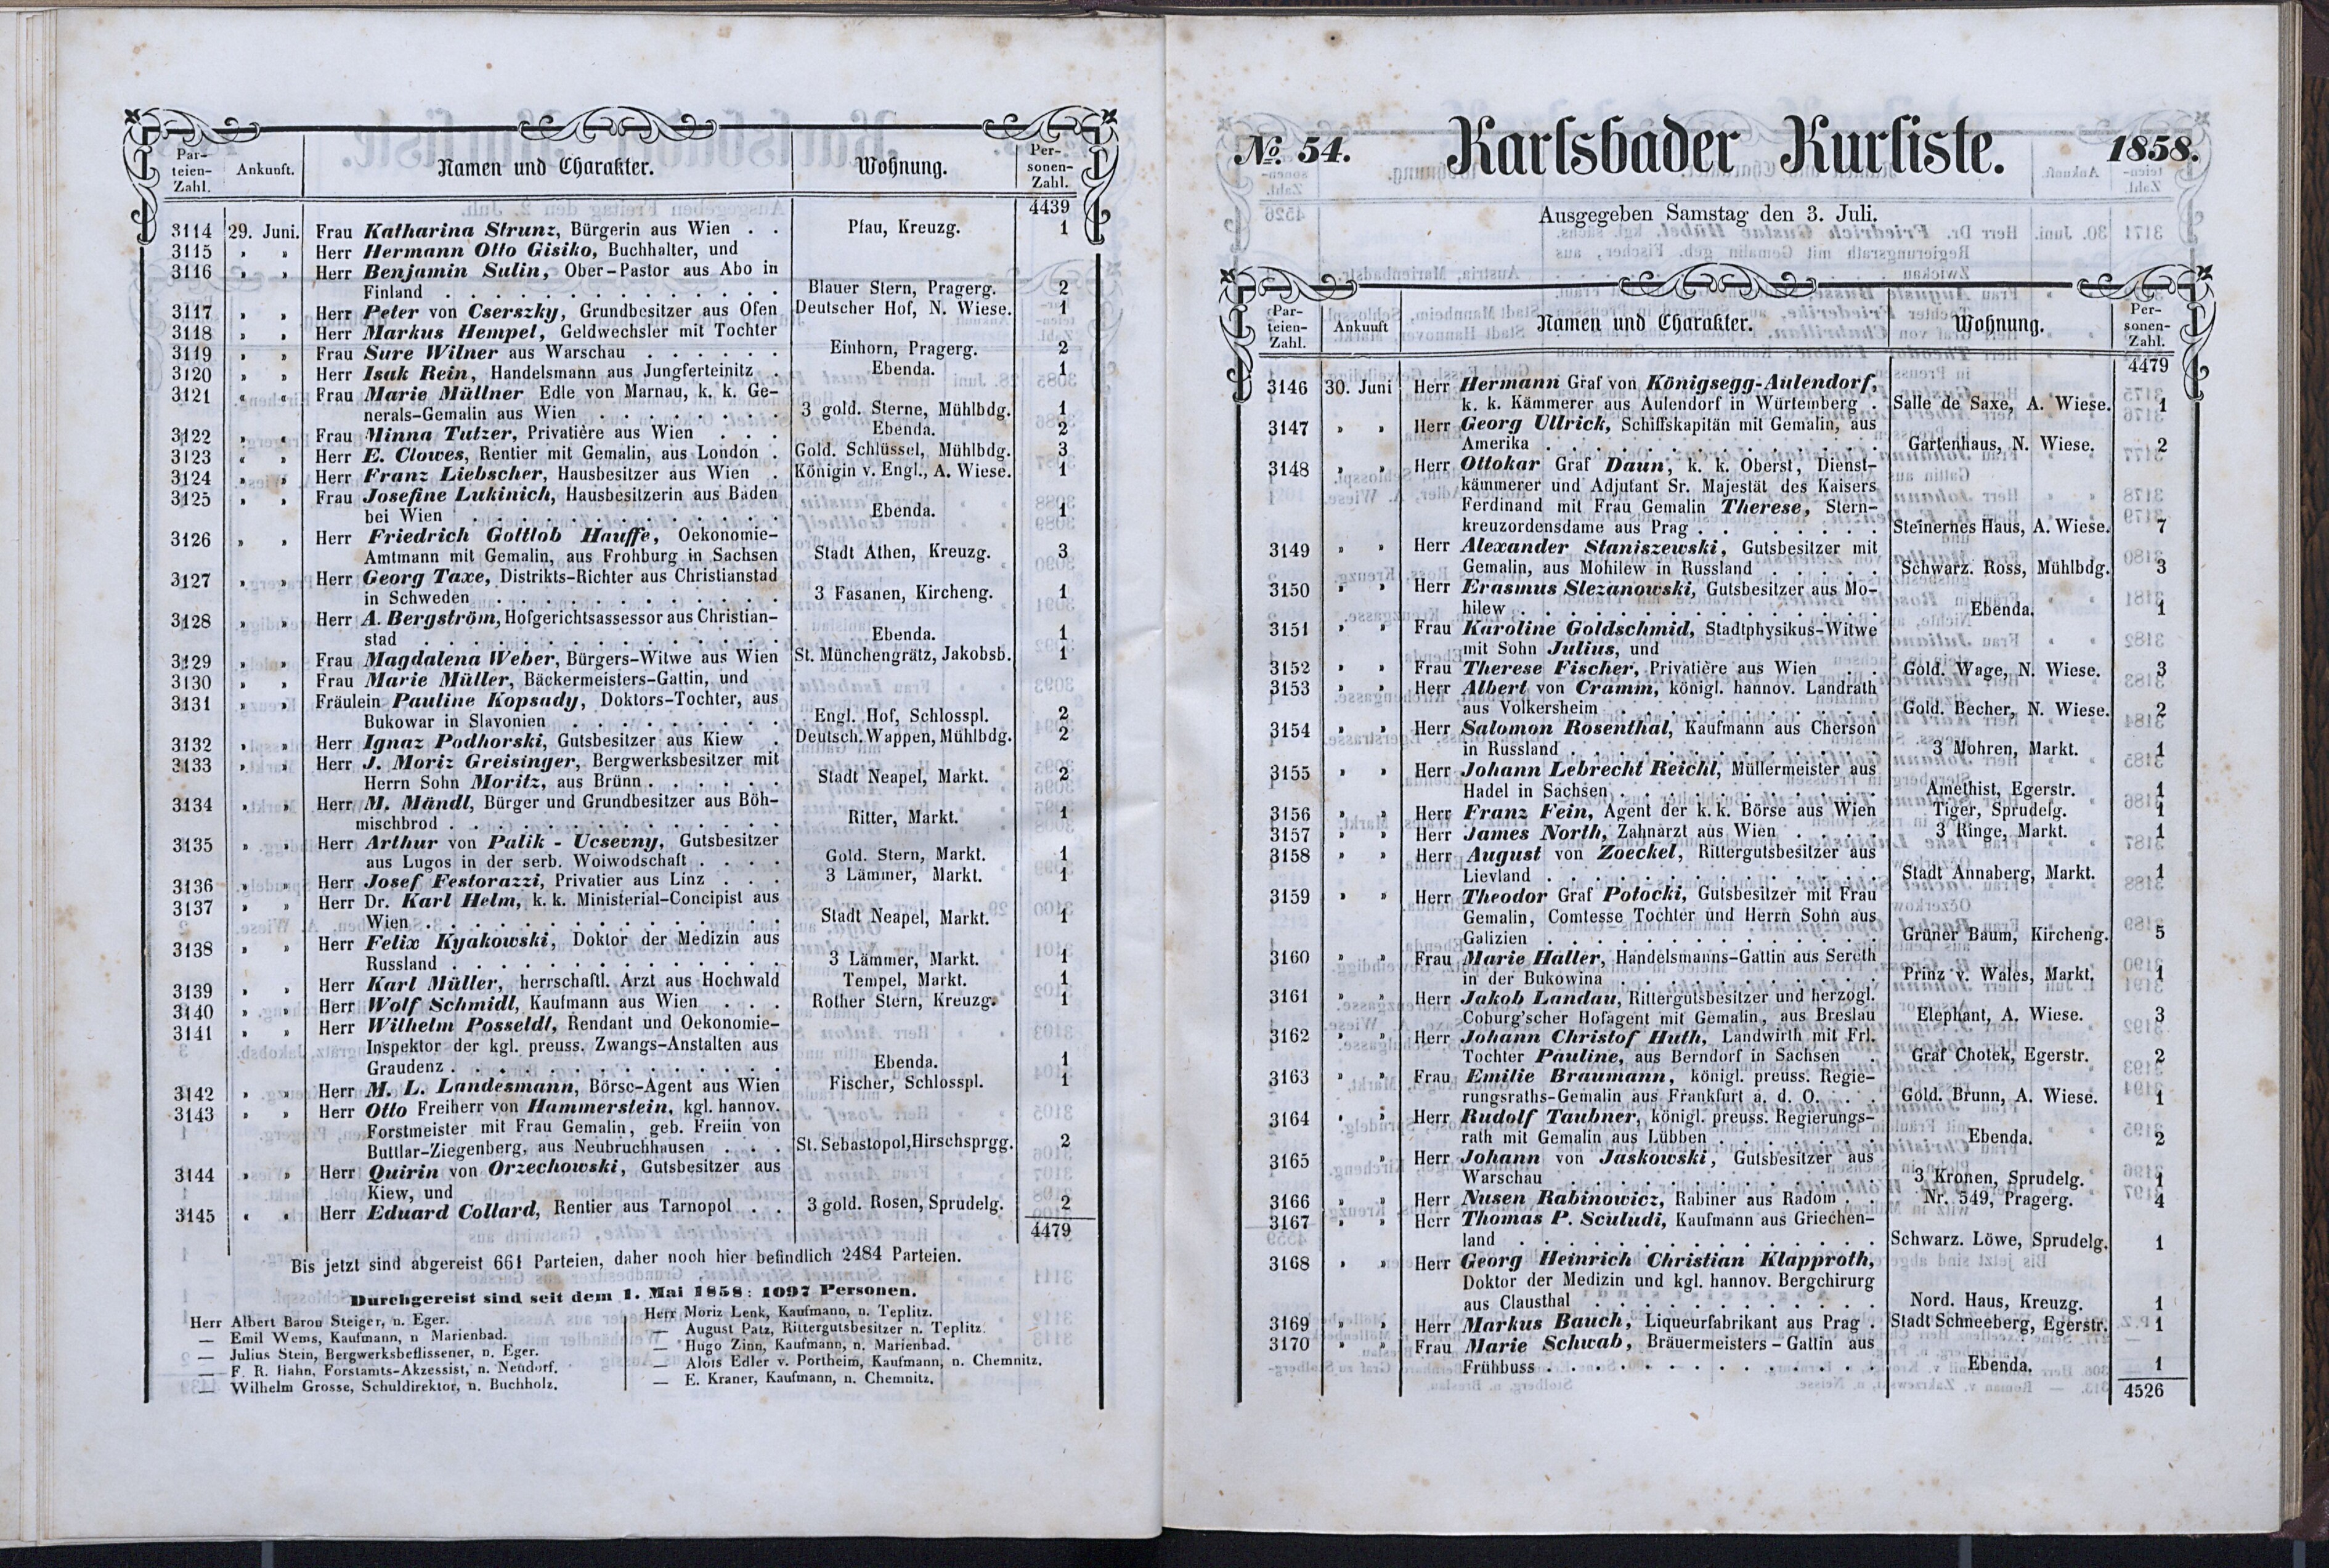 Par-
teien-
Zahl.
Ankunft.
Namen und Charakter.
Wohnung.
Per-
sonen-
Zahl.
4439
3114 29. Juni. Frau Katharina Strunz, Bürgerin aus Wien . . Pfau, Kreuzg. 1
3115 » » Herr Hermann Otto Gisiko, Buchhalter, und
3116 » » Herr Benjamin Sulin, Ober-Pastor aus Abo in
Finland . . . Blauer Stern, Pragerg. 2
3117 » » Herr Peter von Cserszky, Grundbesitzer aus Ofen Deutscher Hof, N. Wiese. 1
3118 » » Herr Markus Hempel, Geldwechsler mit Tochter
3119 » » Frau Sure Wilner aus Warschau . . . Einhorn, Pragerg. 2
3120 » » Herr Isak Rein, Handelsmann aus Jungferteinitz . Ebenda. 1
3121 « « Frau Marie Müllner Edle von Marnau, k. k. Ge-
nerals-Gemalin aus Wien . . . 3 gold. Sterne, Mühlbdg. 1
3122 » « Frau Minna Tutzer, Privatière aus Wien . . . Ebenda. 2
3123 « » Herr E. Clowes, Rentier mit Gemalin, aus London . Gold. Schlüssel, Mühlbdg. 3
3124 » » Herr Franz Liebscher, Hausbesitzer aus Wien . Königin v. Engl., A. Wiese. 1
3125 » » Frau Josefine Lukinich, Hausbesitzerin aus Baden
bei Wien . . . Ebenda. 1
3126 » » Herr Friedrich Gottlob Hauffe, Oekonomie-
Amtmann mit Gemalin, aus Frohburg in Sachsen Stadt Athen, Kreuzg. 3
3127 » » Herr Georg Taxe, Distrikts-Richter aus Christianstad
in Schweden . . . 3 Fasanen, Kircheng. 1
3128 » » Herr A. Bergström, Hofgerichtsassessor aus Christian-
stad . . . Ebenda. 1
3129 » » Frau Magdalena Weber, Bürgers-Witwe aus Wien St. Münchengrätz, Jakobsb. 1
3130 » » Frau Marie Müller, Bäckermeisters-Gattin, und
3131 » » Fräulein Pauline Kopsady, Doktors-Tochter, aus
Bukowar in Slavonien . . . Engl. Hof, Schlosspl. 2
3132 » » Herr Ignaz Podhorski, Gutsbesitzer aus Kiew . Deutsch. Wappen, Mühlbdg. 2
3133 » » Herr J. Moriz Greisinger, Bergwerksbesitzer mit
Herrn Sohn Moritz, aus Brünn . . . Stadt Neapel, Markt. 2
3134 » » Herr M. Mändl, Bürger und Grundbesitzer aus Böh-
mischbrod . . . Ritter, Markt. 1
3135 » » Herr Arthur von Palik - Ucsevny, Gutsbesitzer
aus Lugos in der serb. Woiwodschaft . . . . Gold. Stern, Markt. 1
3136 » » Herr Josef Festorazzi, Privatier aus Linz . . . 3 Lämmer, Markt. 1
3137 » » Herr Dr. Karl Helm, k. k. Ministerial-Concipist aus
Wien . . . Stadt Neapel, Markt. 1
3138 » » Herr Felix Kyakowski, Doktor der Medizin aus
Russland . . . 3 Lämmer, Markt. 1
3139 » » Herr Karl Müller, herrschaftl. Arzt aus Hochwald Tempel, Markt. 1
3140 » » Herr Wolf Schmidl, Kaufmann aus Wien . . . Rother Stern, Kreuzg. 1
3141 » » Herr Wilhelm Posseldt, Rendant und Oekonomie-
Inspektor der kgl. preuss. Zwangs-Anstalten aus
Graudenz . . . Ebenda. 1
3142 » » Herr M. L. Landesmann, Börse-Agent aus Wien Fischer, Schlosspl. 1
3143 » » Herr Otto Freiherr von Hammerstein, kgl. hannov.
Forstmeister mit Frau Gemalin, geb. Freiin von
Buttlar-Ziegenberg, aus Neubruchhausen . . . St. Sebastopol, Hirschsprgg. 2
3144 » » Herr Quirin von Orzechowski, Gutsbesitzer aus
Kiew, und
3145 « « Herr Eduard Collard, Rentier aus Tarnopol . . 3 gold. Rosen, Sprudelg. 2
4479
Bis jetzt sind abgereist 661 Parteien, daher noch hier befindlich 2484 Parteien.
Durchgereist sind seit dem 1. Mai 1858: 1097 Personen.
Herr Albert Baron Steiger, n. Eger.
— Emil Wems, Kaufmann, n Marienbad.
— Julius Stein, Bergwerksbeflissener, n. Eger.
— F. R. Hahn, Forstamts-Akzessist, n. Neudorf.
— Wilhelm Grosse, Schuldirektor, n. Buchholz.
Herr Moriz Lenk, Kaufmann, n. Teplitz.
— August Patz, Rittergutsbesitzer n. Teplitz.
— Hugo Zinn, Kaufmann, n. Marienbad.
— Alois Edler v. Portheim, Kaufmann, n. Chemnitz.
— E. Kraner, Kaufmann, n. Chemnitz.
No. 54. Karlsbader Kurliste. 1858.
Ausgegeben Samstag den 3. Juli.
Par-
teien-
Zahl.
Ankunft
Namen und Charakter.
Wohnung.
Per-
sonen-
Zahl.
4479
3146 30. Juni Herr Hermann Graf von Königsegg-Aulendorf,
k. k. Kämmerer aus Aulendorf in Würtemberg . Salle de Saxe, A. Wiese. 1
3147 » » Herr Georg Ullrick, Schiffskapitän mit Gemalin, aus
Amerika . . . Gartenhaus, N. Wiese. 2
3148 » » Herr Ottokar Graf Daun, k. k. Oberst, Dienst-
kämmerer und Adjutant Sr. Majestät des Kaisers
Ferdinand mit Frau Gemalin Therese, Stern-
kreuzordensdame aus Prag . . . Steinernes Haus, A. Wiese. 7
3149 » » Herr Alexander Staniszewski, Gutsbesitzer mit
Gemalin, aus Mohilew in Russland . . . Schwarz. Ross, Mühlbdg. 3
3150 » » Herr Erasmus Slezanowski, Gutsbesitzer aus Mo-
hilew . . . Ebenda. 1
3151 » » Frau Karoline Goldschmid, Stadtphysikus-Witwe
mit Sohn Julius, und
3152 » » Frau Therese Fischer, Privatière aus Wien . . Gold. Wage, N. Wiese. 3
3153 » » Herr Albert von Cramm, königl. hannov. Landrath
aus Volkersheim . . . Gold. Becher, N. Wiese. 2
3154 » » Herr Salomon Rosenthal, Kaufmann aus Cherson
in Russland . . . 3 Mohren, Markt. 1
3155 » » Herr Johann Lebrecht Reichl, Müllermeister aus
Hadel in Sachsen . . . Amethist, Egerstr. 1
3156 » » Herr Franz Fein, Agent der k. k. Börse aus Wien Tiger, Sprudelg. 1
3157 » » Herr James North, Zahnarzt aus Wien . . . . 3 Ringe, Markt. 1
3158 » » Herr August von Zoeckel, Rittergutsbesitzer aus
Lievland . . . Stadt Annaberg, Markt. 1
3159 » » Herr Theodor Graf Potocki, Gutsbesitzer mit Frau
Gemalin, Comtesse Tochter und Herrn Sohn aus
Galizien . . . Grüner Baum, Kircheng. 5
3160 » » Frau Marie Haller, Handelsmanns-Gattin aus Sereth
in der Bukowina . . . Prinz v. Wales, Markt, 1
3161 » » Herr Jakob Landau, Rittergutsbesitzer und herzogl.
Coburg'scher Hofagent mit Gemalin, aus Breslau Elephant, A. Wiese. 3
3162 » » Herr Johann Christof Huth, Landwirth mit Frl.
Tochter Pauline, aus Berndorf in Sachsen . Graf Chotek, Egerstr. 2
3163 » » Frau Emilie Braumann, königl. preuss. Regie-
rungsraths-Gemalin aus Frankfurt a. d. O. . . Gold. Brunn, A. Wiese. 1
3164 » » Herr Rudolf Taubner, königl. preuss. Regierungs-
rath mit Gemalin aus Lübben . . . Ebenda. 2
3165 » Herr Johann von Jaskowski, Gutsbesitzer aus
Warschau . . . 3 Kronen, Sprudelg. 1
3166 » » Herr Nusen Rabinowicz, Rabiner aus Radom . . Nr. 549, Pragerg. 4
3167 » » Herr Thomas P. Sculudi, Kaufmann aus Griechen-
land . . . Schwarz. Löwe, Sprudelg. 1
3168 » » Herr Georg Heinrich Christian Klapproth,
Doktor der Medizin und kgl. hannov. Bergchirurg
aus Clausthal . . . Nord. Haus, Kreuzg. 1
3169 » » Herr Markus Bauch, Liqueurfabrikant aus Prag . Stadt Schneeberg, Egerstr. 1
3170 » » Frau Marie Schwab, Bräuermeisters-Gattin aus
Frühbuss . . . Ebenda. 1
4526